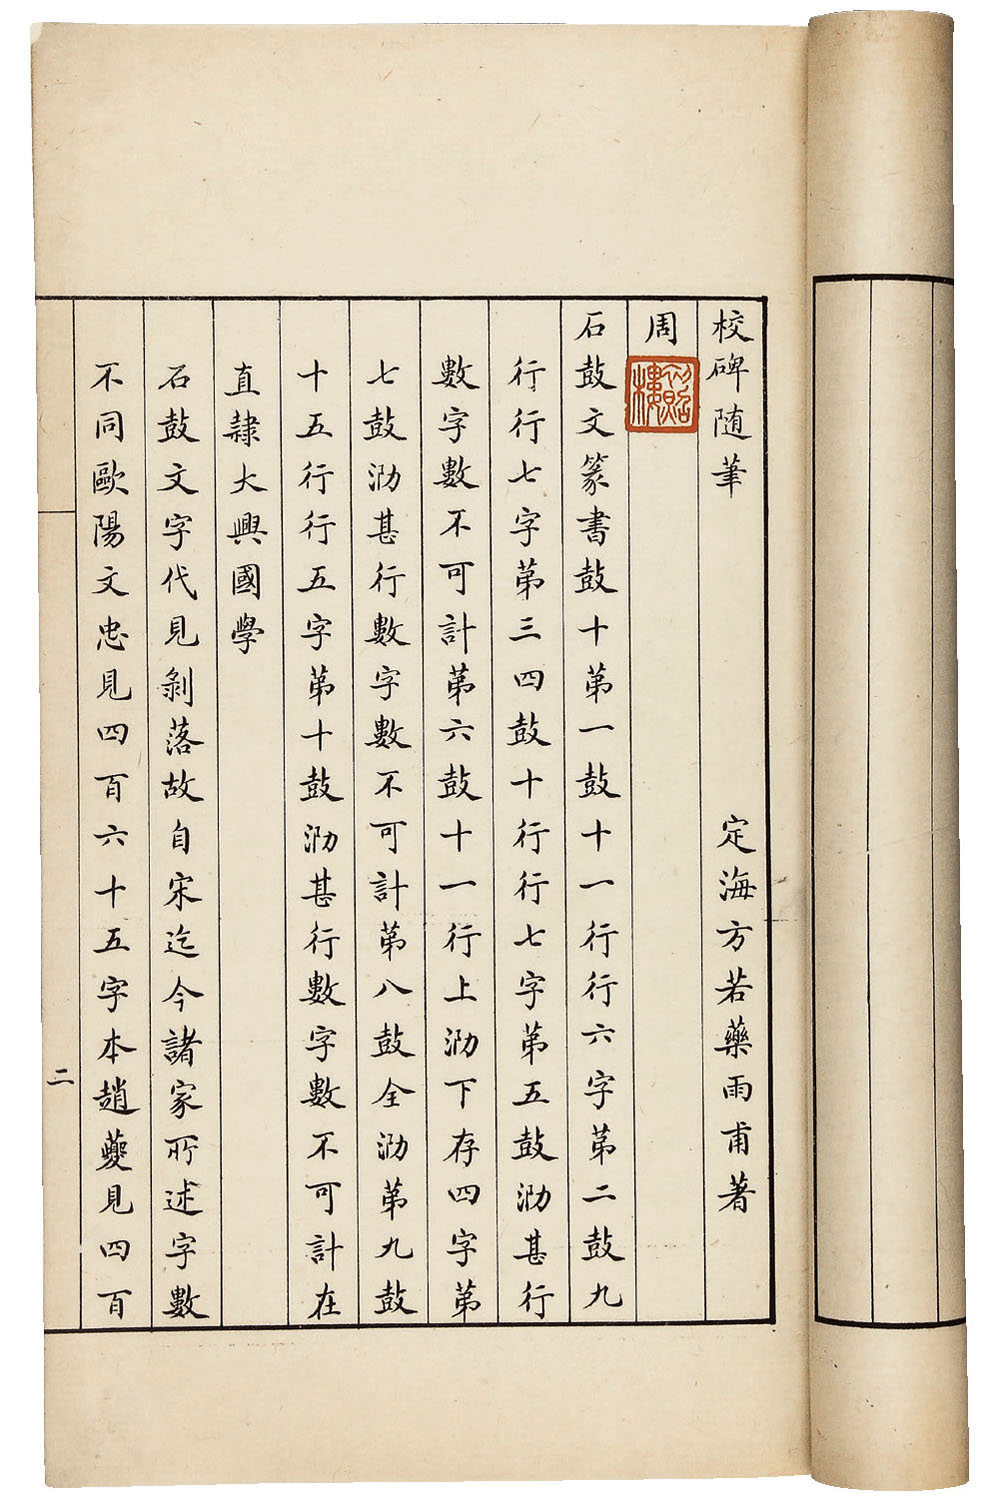 校碑随筆　定海方若藥雨甫著
周
石鼓文篆書鼓十第一鼓十一行行六字第二鼓九
行行七字第三四鼓十行行七字第五鼓泐甚行
數字數不可計第六鼓十一行上泐下存四字第
七鼓泐甚行數字數不可計第八鼓全泐第九鼓
十五行行五字第十鼓泐甚行數字數不可計在
直隸大興國學
石鼓文字代見剝落故自宋迄今諸家所述字數
不同歐陽文忠見四百六十五字本趙夔見四百
二